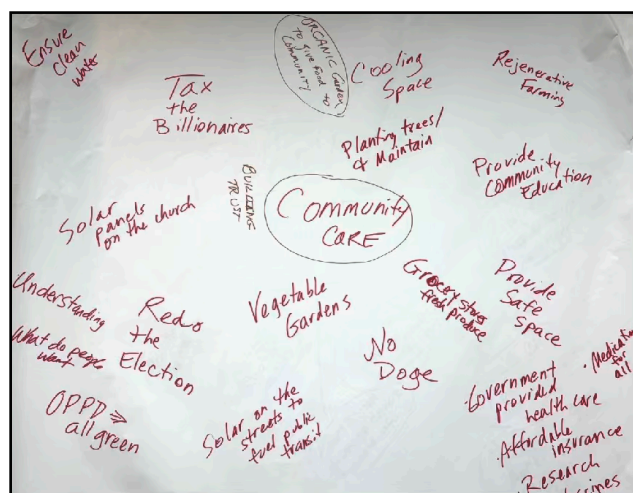 Ensure
clean
water
Tax
the
Billionaires
ORGANIC Garden
to give food to
Community
Cooling
Space
Regenerative
Farming
Planting trees/
& Maintain
Provide
Community
Education
Solar
panels
on the church
BUILDING
TRUST
Community
CARE
Understanding
What do people
want
Redo
the
Election
Vegetable
Gardens
Grocery stores
fresh produce
Provide
Safe
Space
No
Doge
OPPD →
all green
Solar on the
streets to
fuel public
transit
Government
provided
health care
· Medication
for
all
· Affordable
insurance
· Research